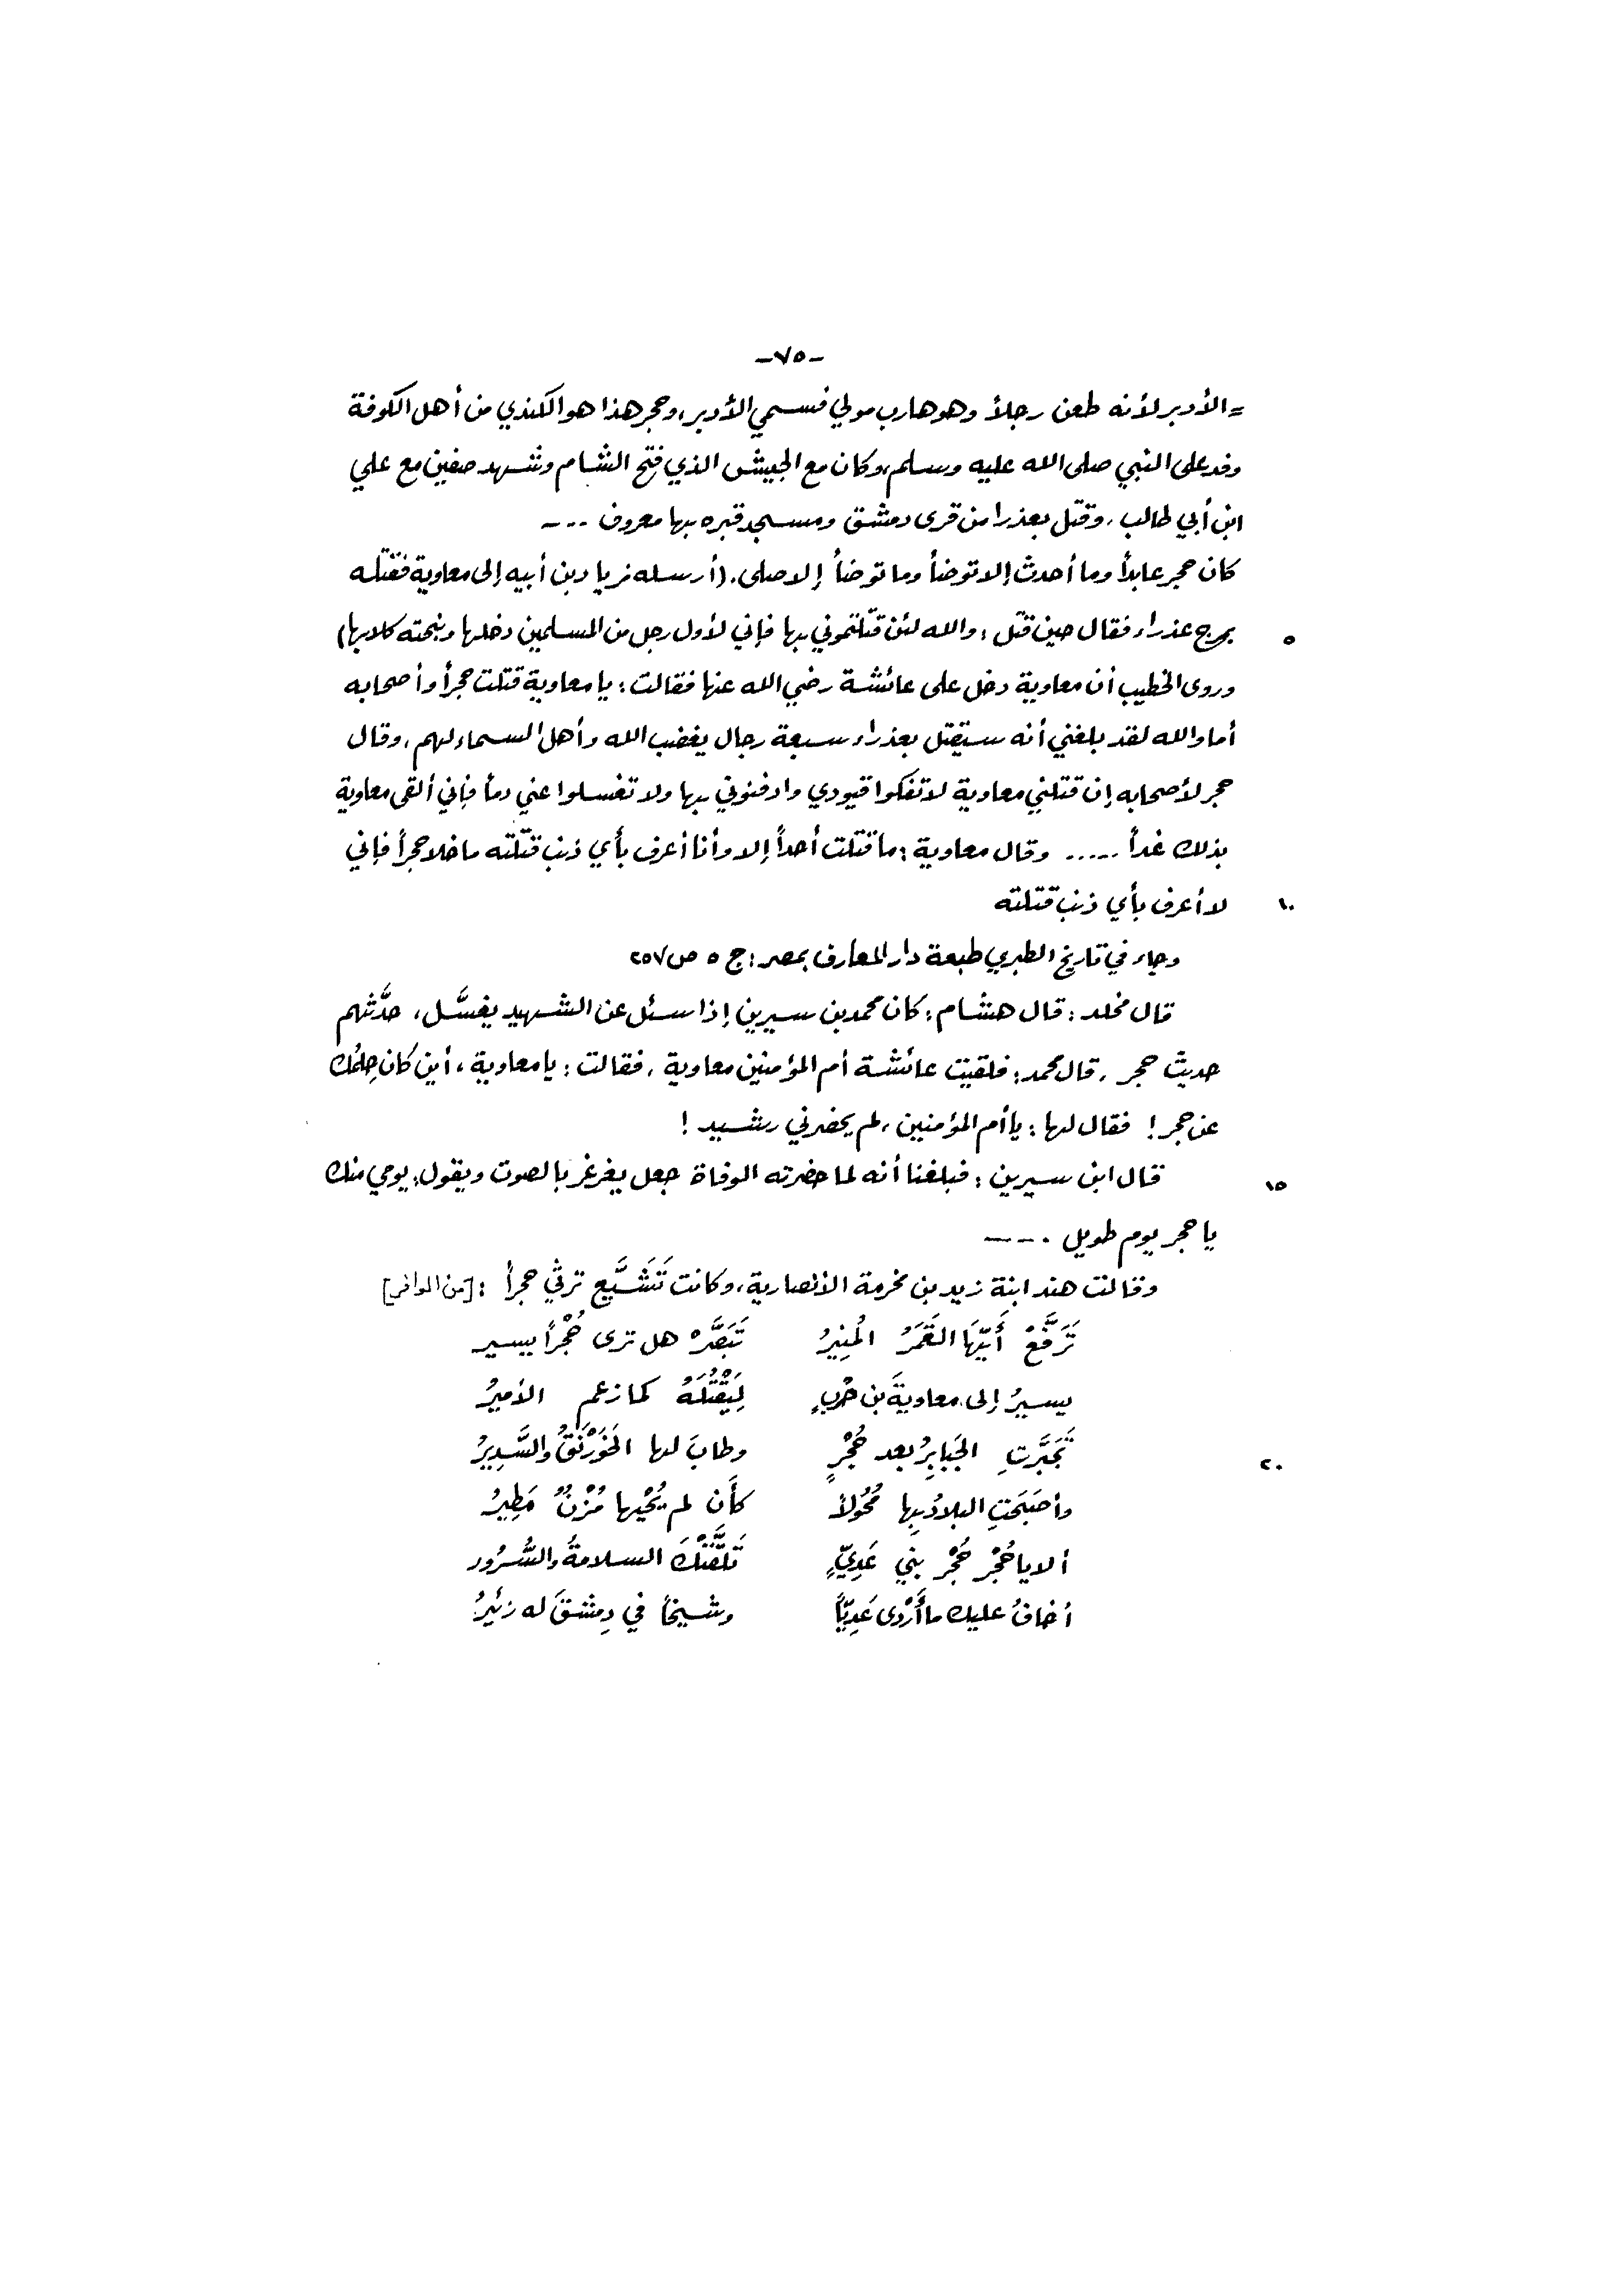 -٧٥-
= الأدبر لأنه طعن رجلاً وهو هارب مولي فسمي الأدبر، وحجر هذا هو الكندي من أهل الكوفة
وفد على النبي صلى الله عليه وسلم، وكان مع الجيش الذي فتح الشام وشهد صفين مع علي
ابن أبي طالب، وقتل بعذرا من قرى دمشق ومسجد قبره بها معروف ...
كان حجر عابداً وما أحدث إلا توضأ وما توضأ إلا صلى. (أرسله زياد بن أبيه إلى معاوية فقتله
٥ بمرج عذراء فقال حين قتل: والله لئن قتلتموني بها فإني لأول رجل من المسلمين دخلها ونبحته كلابها)
وروى الخطيب أن معاوية دخل على عائشة رضي الله عنها فقالت: يا معاوية قتلت حجراً وأصحابه
أما والله لقد بلغني أنه سيقتل بعذراء سبعة رجال يغضب الله وأهل السماء لهم، وقال
حجر لأصحابه إن قتلني معاوية لا تفكوا قيودي وادفنوني بها ولا تغسلوا عني دماً فإني ألقى معاوية
بذلك غداً ..... وقال معاوية: ما قتلت أحداً إلا وأنا أعرف بأي ذنب قتلته ما خلا حجراً فإني
١٠ لا أعرف بأي ذنب قتلته
وجاء في تاريخ الطبري طبعة دار المعارف بمصر: ج ٥ ص ٢٥٧
قال مخلد: قال هشام: كان محمد بن سيرين إذا سئل عن الشهيد يغسَّل، حدَّثهم
حديثَ حجر، قال محمد: فلقيت عائشة أم المؤمنين معاوية، فقالت: يا معاوية، أين كان حِلمُك
عن حجر! فقال لها: يا أم المؤمنين، لم يحضرني رشيد!
١٥ قال ابن سيرين: فبلغنا أنه لما حضرته الوفاة جعل يغرغر بالصوت ويقول: يومي منك
يا حجر يوم طويل . ---
وقالت هند ابنة زيد بن مخرمة الأنصارية، وكانت تَتَشَيَّع ترثي حجراً : [من الوافر]
تَرَفَّعْ أَيُّهَا القَمَرُ المُنِيرُ تَبَصَّرْ هل ترى حُجْراً يسير
يسيرُ إلى معاويةَ بن حَرْبٍ لِيَقْتُلَهُ كما زعم الأميرُ
٢٠ تَجَبَّرَتِ الجَبَابِرُ بعد حُجْرٍ وطابَ لها الخَوَرْنَقُ والسَّدِيرُ
وأصْبَحَتِ البلادُ بِها مُحُولاً كأَن لم يُحْيِها مُزْنٌ مَطِيرُ
ألا يا حُجْر حُجْر بني عَدِيٍّ تَلَقَّتْكَ السلامةُ والسُّرُور
أخافُ عليك ما أَرْدَى عَدِيّاً وشيخاً في دِمشْقَ له زئيرُ